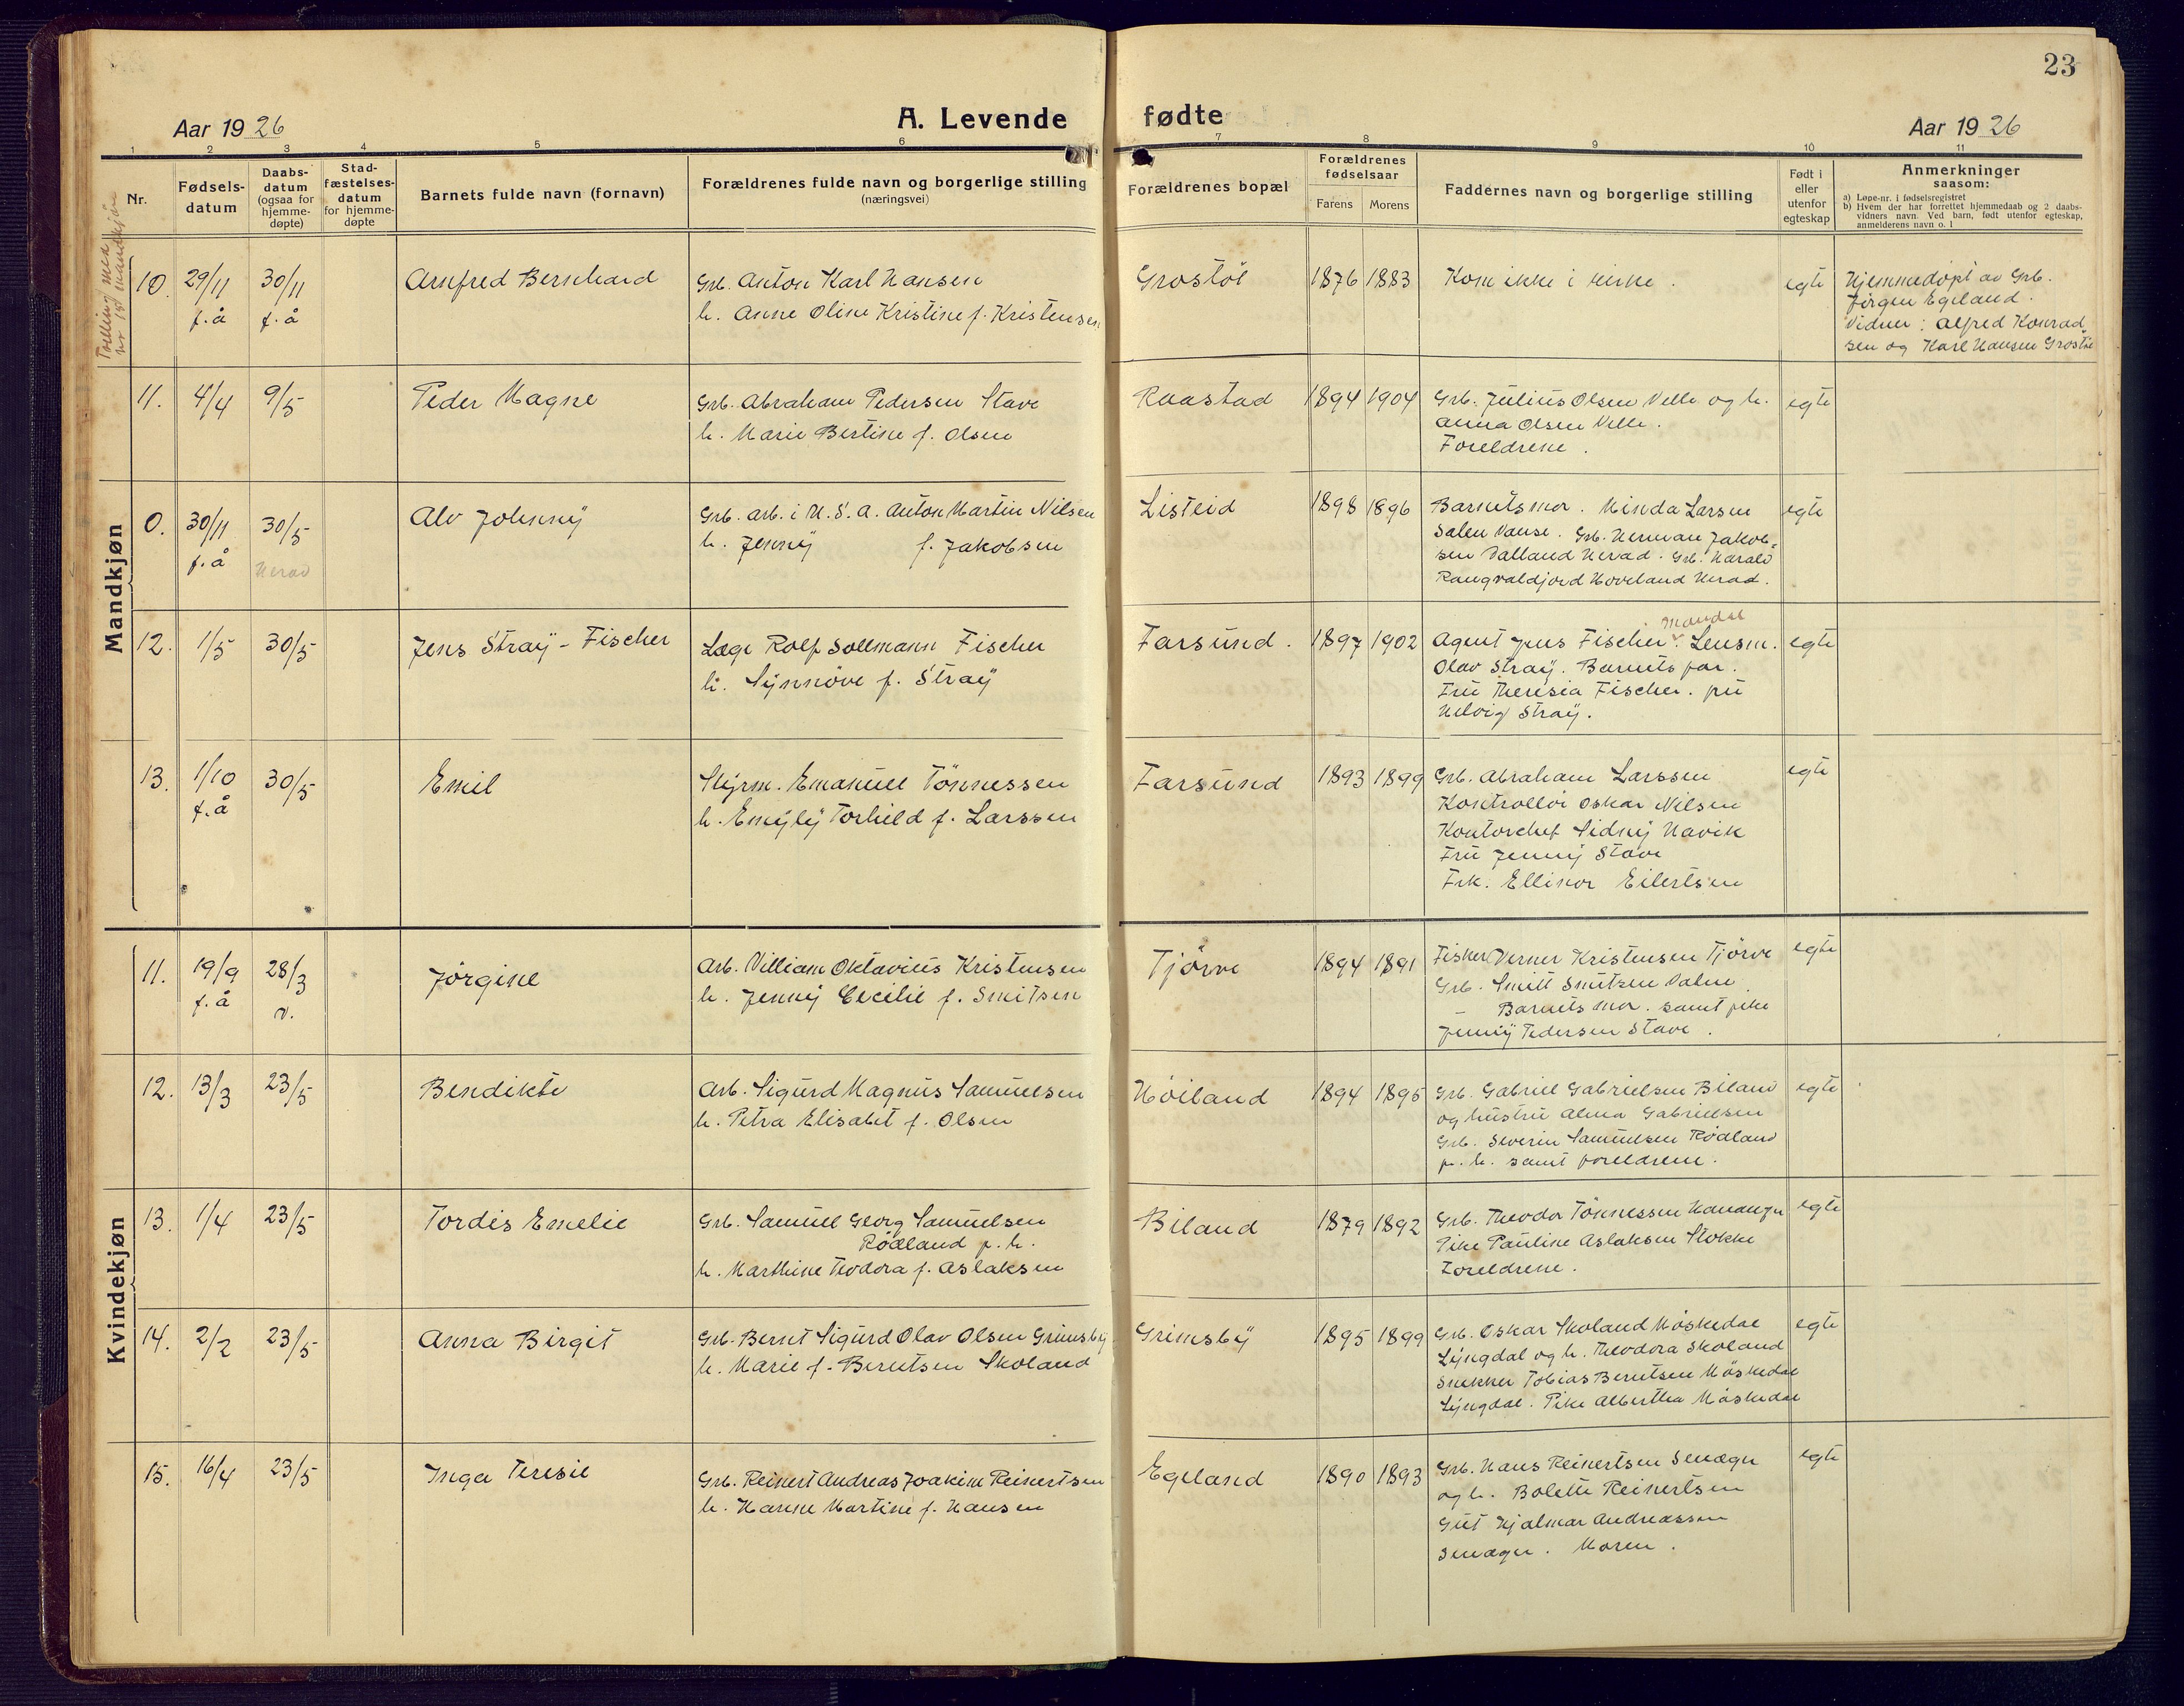 23
Aar 1926
A. Levende fødte
Aar 1926
1 2 3 4 5 6 7 8 9 10 11
Nr.
Fødsels-
datum
Daabs-
datum
(ogsaa for
hjemme-
døpte)
Stad-
fæstelses-
datum
for hjemme-
døpte
Barnets fulde navn (fornavn)
Forældrenes fulde navn og borgerlige stilling
(næringsvei)
Forældrenes bopæl
Forældrenes
fødselsaar
Farens Morens
Faddernes navn og borgerlige stilling
Født i
eller
utenfor
egteskap
Anmerkninger
saasom:
a) Løpe-nr. i fødselsregistret
b) Hvem der har forrettet hjemmedaab og 2 daabs-
vidners navn. Ved barn, født utenfor egteskap,
anmelderens navn o. l
Mandkjøn
Tvilling med
nr 15 mandkjøn
10. 29/11 f. å 30/11 f. å Arnfred Bernhard
Grb. Anton Karl Hansen
h. Anne Oline Kristine f. Kristensen
Grostöl 1876 1883 Kom ikke i kirke. egte
Hjemmedöpt av Grb.
Jörgen Egeland.
Vidner: Alfred Konrad
sen og Karl Hansen Grostöl
11. 4/4 9/5 Peder Magne
Grb. Abraham Pedersen Stave
h. Marie Bertine f. Olsen
Raastad 1894 1904
Grb. Julius Olsen Velle og h.
Anna Olsen Velle.
Foreldrene.
egte
0. 30/11 f. å 30/5 Herad Alv Johnny
Grb. arb. i U. S. A. Anton Martin Nilsen
h. Jenny f. Jakobsen
Listeid 1898 1896
Barnets mor. Minda Larsen
Salen Vanse. Grb. Herman Jakob-
sen Dalland Herad. Grb. Harald
Rangvaldjord Hoveland Herad.
egte
12. 1/5 30/5 Jens Stray-Fischer
Læge Rolf Sollmann Fischer
h. Synnöve f. Stray
Farsund. 1897 1902
Mandal
Agent Jens Fischer. Lensm.
Olav Stray. Barnets far.
Fru Theresia Fischer. fru
Helvig Stray.
egte
13. 1/10 f. å 30/5 Emil
Styrm. Emanuel Tönnessen
h. Emyly Torhild f. Larssen
Farsund 1893 1899
Grb. Abraham Larssen
Kontrollör Oskar Nilsen
Kontorchef Sidny Havik
Fru Jenny Stave
Frk. Ellinor Eilertsen
egte
Kvindekjøn
11. 19/9 f. å 28/3 v. Jörgine
Arb. Villiam Oktavius Kristensen
h. Jenny Cecilie f. Smitsen
Tjörve 1894 1891
Fisker Verner Kristensen Tjörve
Grb. Smitt Smitzen Dalne
– Barnets mor. samt pike
Jenny Pedersen Stave.
egte
12. 13/3 23/5 Bendikte
Arb. Sigurd Magnus Samuelsen
h. Petra Elisabet f. Olsen
Höiland 1894 1895
Grb. Gabriel Gabrielsen Biland
og hustru Alma Gabrielsen
Grb. Severin Samuelsen Rödland
p. h. samt foreldrene.
egte
13. 1/4 23/5 Tordis Emelie
Grb. Samuel Georg Samuelsen
Rödland p. h.
h. Marthine Teodora f. Aslaksen
Biland 1879 1892
Grb. Theodor Tönnessen Hananger
Pike Pauline Aslaksen Stokke
Foreldrene.
egte
14. 2/2 23/5 Anna Birgit
Grb. Bernt Sigurd Olav Olsen Grimsby
h. Marie f. Berntsen Skoland
Grimsby 1895 1899
Grb. Oskar Skoland Möskedal
Lyngdal og h. Theodora Skoland
Snekker Tobias Berntsen Möskedal
Lyngdal. Pike Albertha Möskedal
egte
15. 16/4 23/5 Inga Teresie
Grb. Reinert Andreas Joakim Reinertsen
h. Hanne Martine f. Hansen
Egeland 1890 1893
Grb. Hans Reinertsen Sevågn
og h. Bolette Reinertsen
Gut Hjalmar Andreassen
Moren.
egte